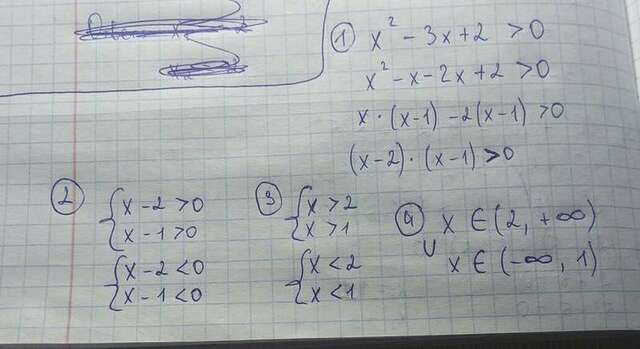 ① x² - 3x + 2 > 0
x² - x - 2x + 2 > 0
x · (x-1) - 2(x-1) > 0
(x-2) · (x-1) > 0
② { x - 2 > 0
x - 1 > 0
{ x - 2 < 0
x - 1 < 0
③ { x > 2
x > 1
{ x < 2
x < 1
④ x ∈ (2, +∞)
∪ x ∈ (-∞, 1)